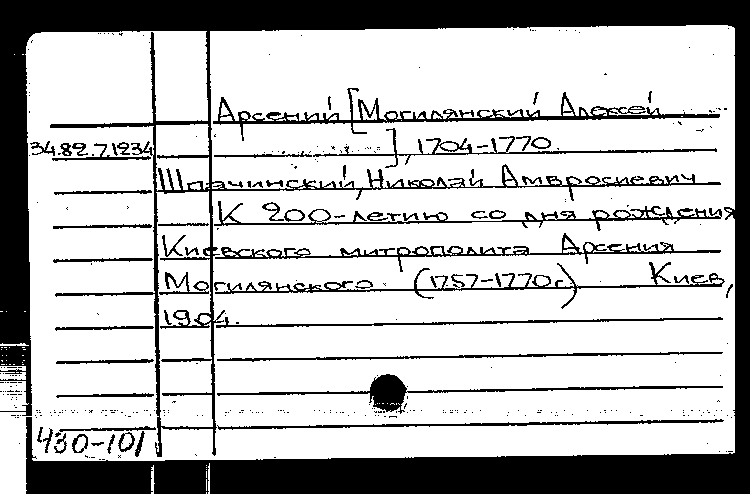 Арсений [Могилянский Алексей
34.82.7.1234 ], 1704-1770.
Шпачинский, Николай Амвросиевич
К 200-летию со дня рождения
Киевского митрополита Арсения
Могилянского. (1757-1770г.) Киев,
1904.
430-101